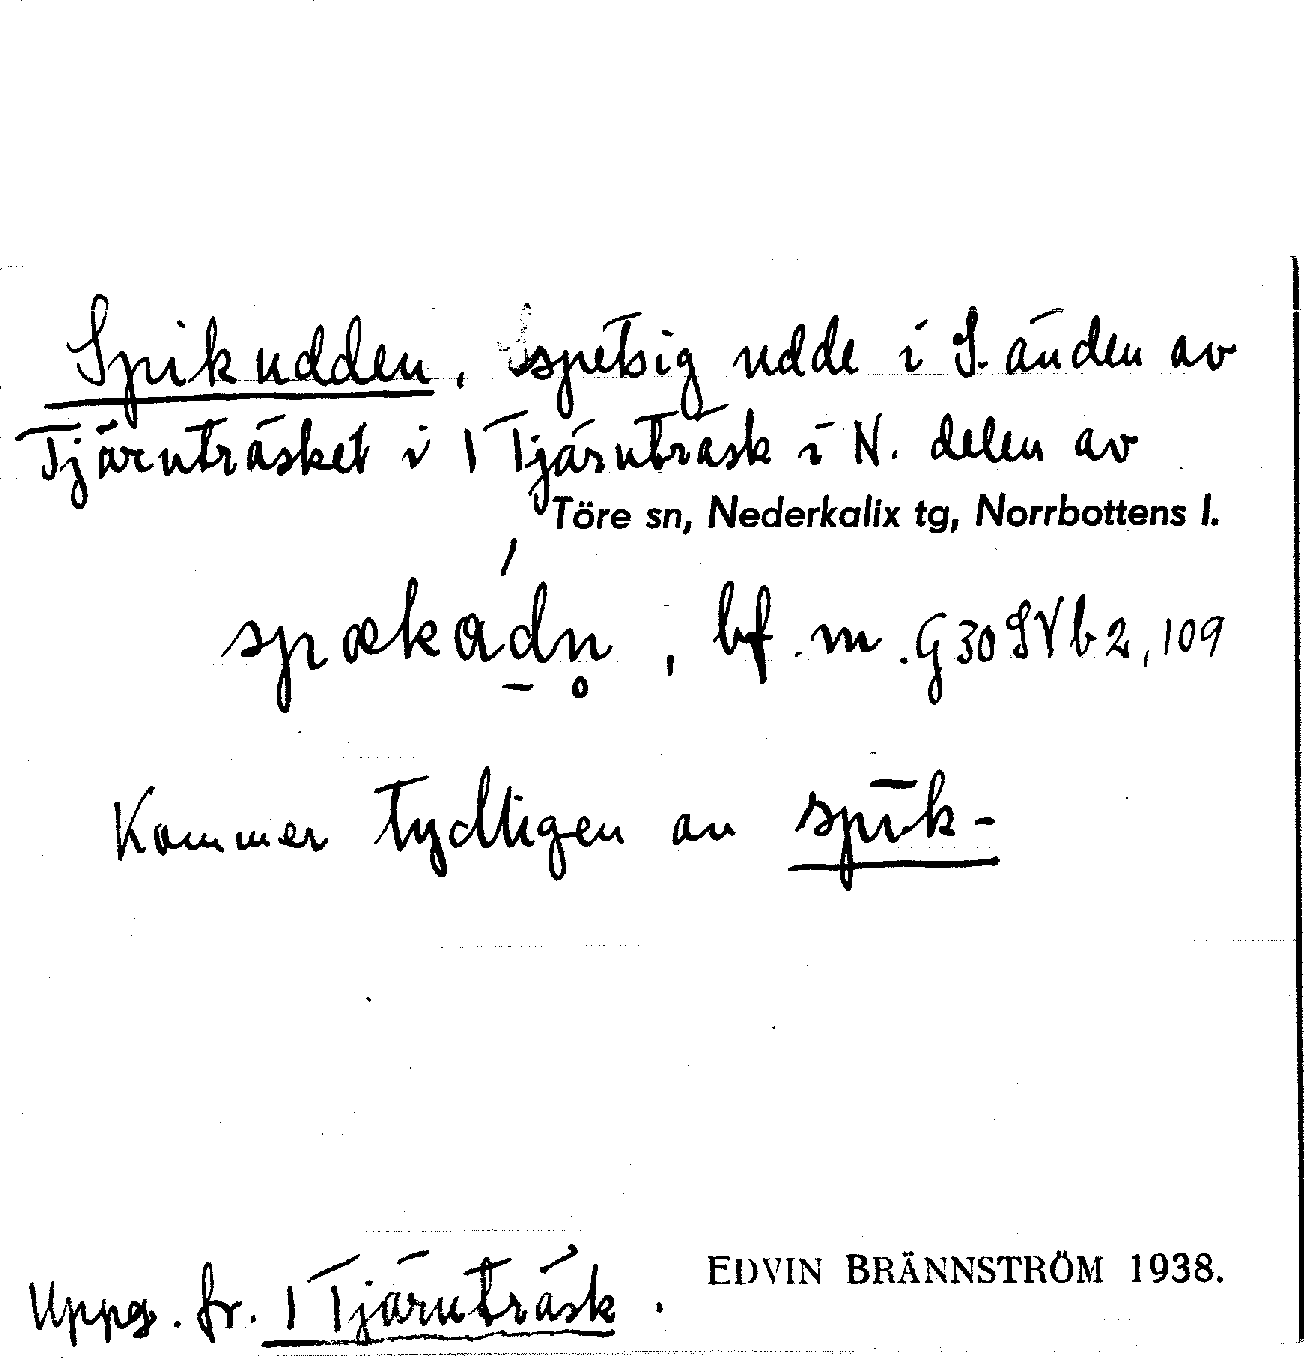 Spikudden, spetsig udde i S. änden av
Tjärnträsket i 1 Tjärnträsk i N. delen av
Töre sn, Nederkalix tg, Norrbottens l.
spækádn̥, bf. m. G30SVb2,109
Kommer tydligen av spīk-
Uppg. fr. 1 Tjärnträsk.
EDVIN BRÄNNSTRÖM 1938.